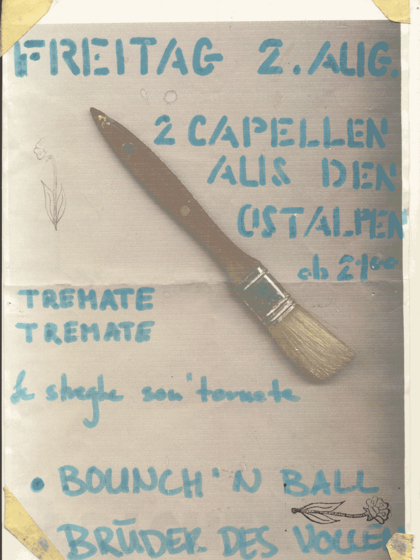 FREITAG 2. AUG.
2 CAPELLEN
AUS DEN
OSTALPEN
ab 21⁰⁰
TREMATE
TREMATE
le streghe son' tornate
• BOUNCH'N BALL
BRÜDER DES VOLLEN